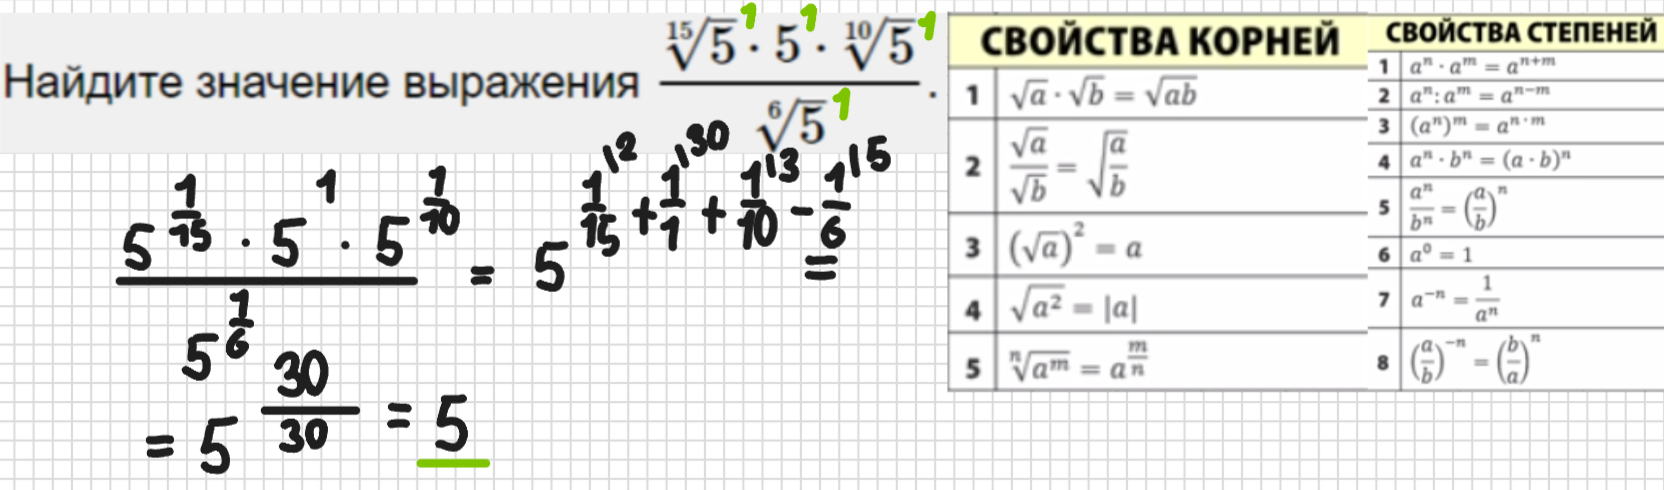 Найдите значение выражения \frac{\sqrt[15]{5}^1 · 5^1 · \sqrt[10]{5}^1}{\sqrt[6]{5}^1}.
\frac{5^{\frac{1}{15}} · 5^1 · 5^{\frac{1}{10}}}{5^{\frac{1}{6}}} = 5^{\frac{1}{15}^{12} + \frac{1}{1}^{130} + \frac{1}{10}^{13} - \frac{1}{6}^{15}} =
= 5^{\frac{30}{30}} = 5
СВОЙСТВА КОРНЕЙ
1 \sqrt{a} · \sqrt{b} = \sqrt{ab}
2 \frac{\sqrt{a}}{\sqrt{b}} = \sqrt{\frac{a}{b}}
3 (\sqrt{a})^2 = a
4 \sqrt{a^2} = |a|
5 \sqrt[n]{a^m} = a^{\frac{m}{n}}
СВОЙСТВА СТЕПЕНЕЙ
1 a^n · a^m = a^{n+m}
2 a^n : a^m = a^{n-m}
3 (a^n)^m = a^{n·m}
4 a^n · b^n = (a · b)^n
5 \frac{a^n}{b^n} = (\frac{a}{b})^n
6 a^0 = 1
7 a^{-n} = \frac{1}{a^n}
8 (\frac{a}{b})^{-n} = (\frac{b}{a})^n